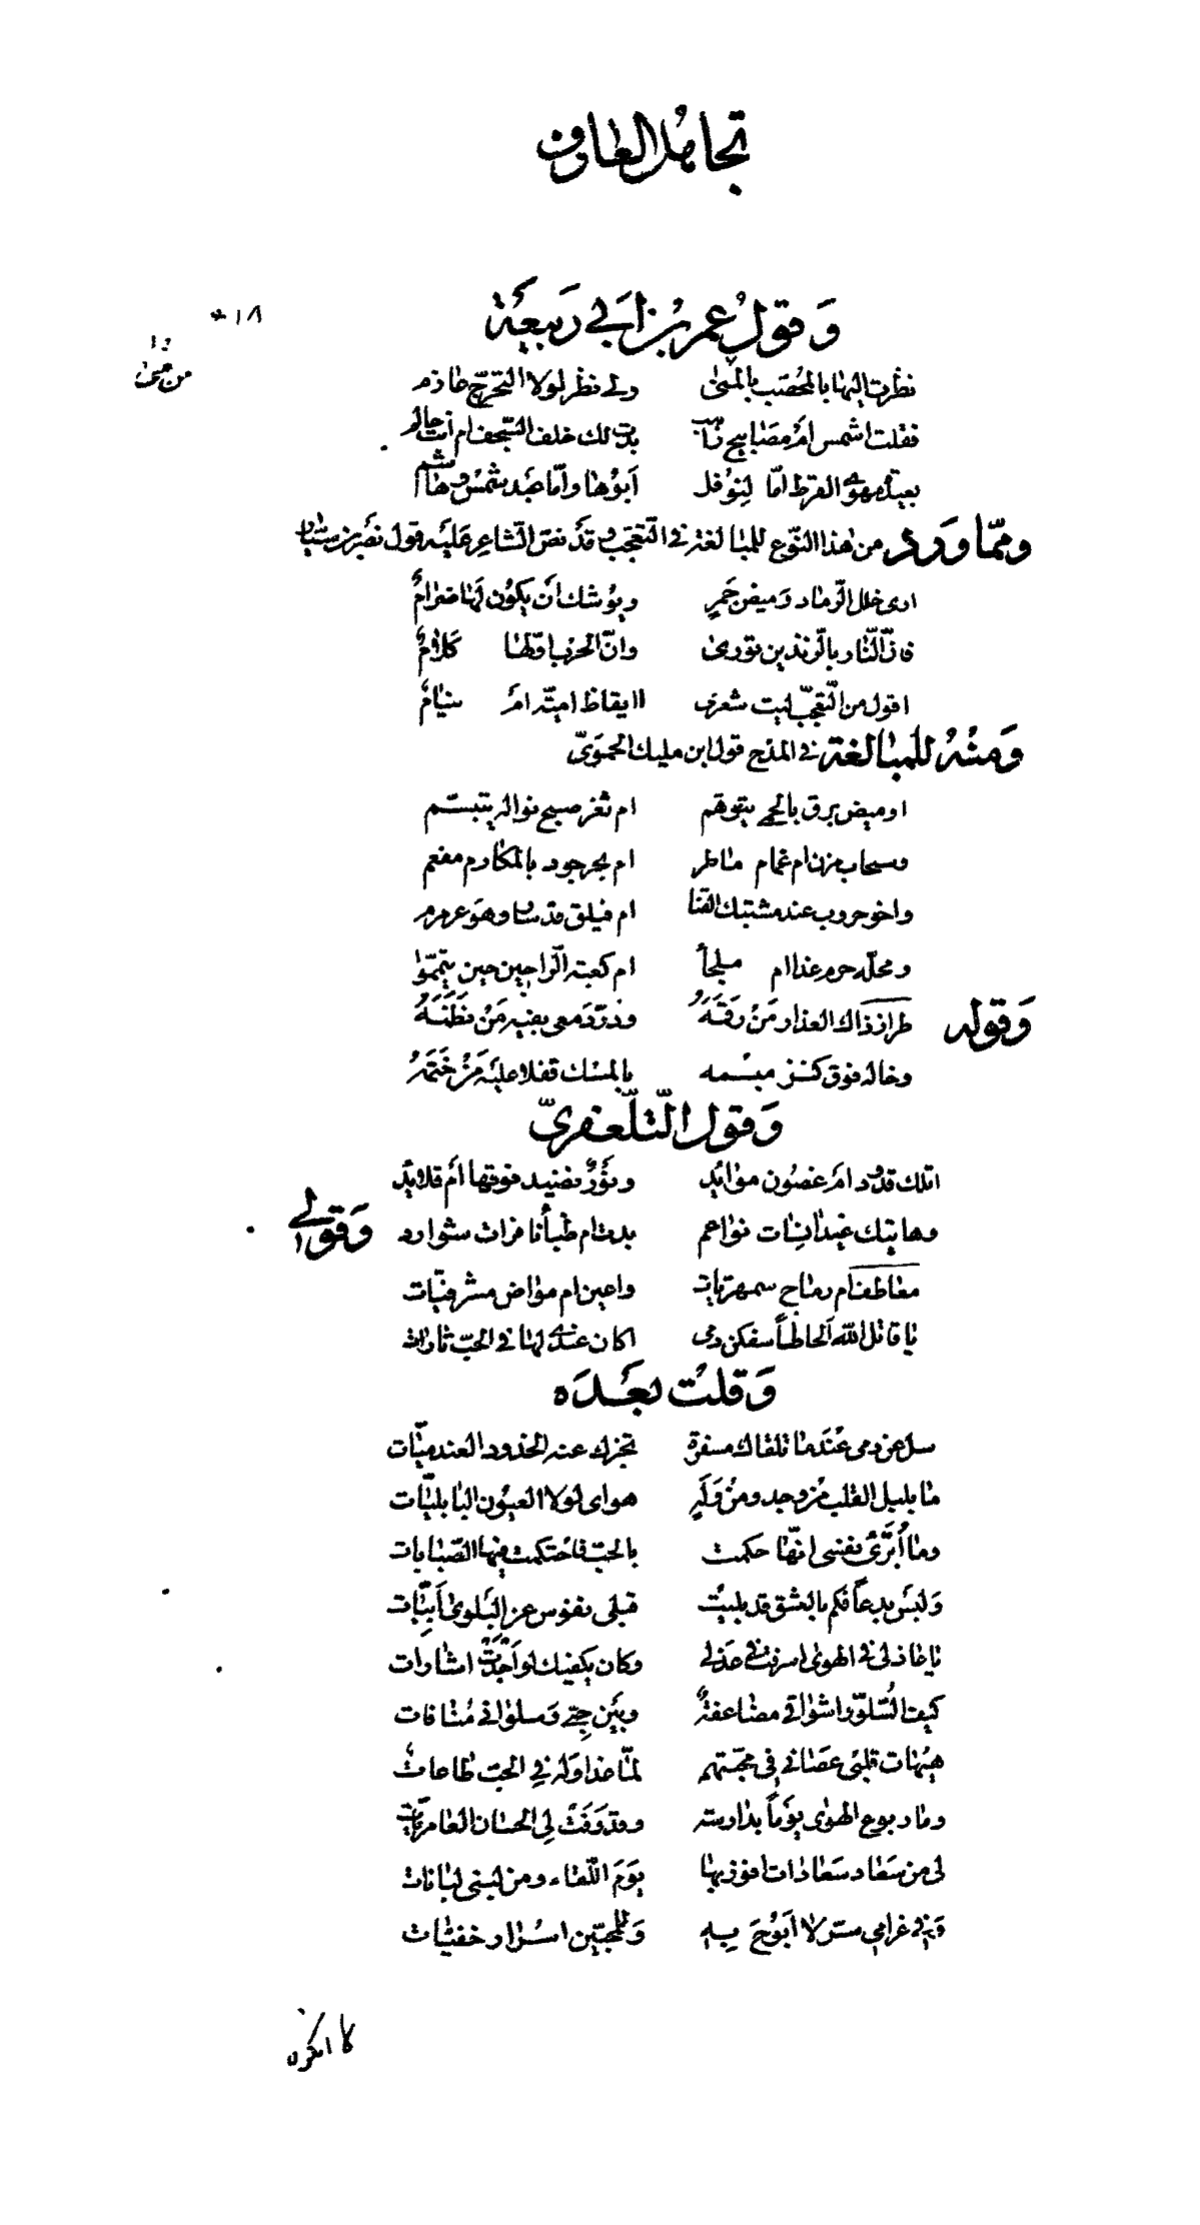 تجاهل العارف
وَقولُ عمر بن ابي رَبيعَة
١٨*
من منى
نظرت اليها بالمحصّب بالمنى ولي نظر لولا التحرّج عازم
فقلت اشمس ام مصابيح بدت لك خلف السّجف ام انت حالم
بعيدة مهوى القرط امّا لِنَوْفل اَبوُها وامّا عبد شمسٍ وهاشم
وممّا وَرد من هٰذا النّوع للمبالغة في التّعجّب وقد نصّ الشّاعر عليه قول نصر بن سيّار
ارى خلل الرّماد وَميضَ جَمرٍ ويوُشك اَن يكوُن لهَا ضرامٌ
فانّ النّار بالزندين تورىٰ وانّ الحرب اوّلهَا كلامٌ
اقول من التّعجّب ليت شعرى اايقاظ اميّة ام نيٰامٌ
وَمنهُ للمبٰالغة في المدح قول ابن مليك الحمَويّ
اوميض برق بالحمى يتوهّم ام ثغر صبح نواله يتبسّم
وسحاب مزن ام غمام مٰاطر ام بحر جود بالمكارم مفعم
واخو حروب عند مشتبك القنا ام فيلق قد سٰار وهوَ عرمرم
ومحلّه حرم غدا ام ملجأ ام كعبة الرّاجين حين تيمّموا
وَقوله طراز ذاك العذار مَن رَقَمَهُ ودرّ دمعى بفيه مَن نظَمَهُ
وخاله فوق كنز مبسمه بالمسك قفلا عليه مَن خَتمَهُ
وَقول التّلّعفريّ
اتلك قدود ام غصُون موٰائد ونَوْرٌ نضيد فوقها اَم قلايد
وهاتيك غيد اٰنسٰات نواعم بدت ام ظبأ نافرات شوارد
وَقولي
معٰاطف ام رمٰاح سمهريّات واعين ام موٰاض مشرفيّات
يٰا قاتل اللّٰه اَلحاظاً سفكن دمى اكان عندى لهٰا في الحبّ ثارات
وَقلت بعَدَه
سل عن دمى عندمٰا تلقاك مسفرة تخبرك عنه الخدود العندميّات
مٰا بلبل القلب من وجد ومن وَلَهٍ هواى لولا العيوُن البٰابليّات
ومٰا اُبَرّئُ نفسى انّهٰا حكمت بالحبّ فاحتكمت فيها الصّبٰابات
وَليسَ بدعاً فكم بالعشق قد بليت قبلى نفوس عن البَلوىٰ اَبِيّٰات
يٰا عٰاذلى في الهوىٰ اسرفت في عذلى وكان يكفيك لو اَجْدَتْ اشٰارات
كيف السّلوّ واشوٰاقى مضٰاعفةٌ وبَين حبّي وَسلوٰانى مُنٰافات
هيهٰات قلبى عصٰاني في محبّتهم لمّا غدا وَله في الحبّ طٰاعاتٌ
ومٰا ربوع الهوٰى يوَماً بدٰارسة وقد وَفَتْ لي الحسٰان العٰامريّات
لى من سعٰاد سعٰادات افوز بهٰا يوَمَ اللّقٰاء ومن لبنى لبٰانات
وَفي غرامي سرّ لا ابَوُح به وَللمحبّين اسرٰار خفيّٰات